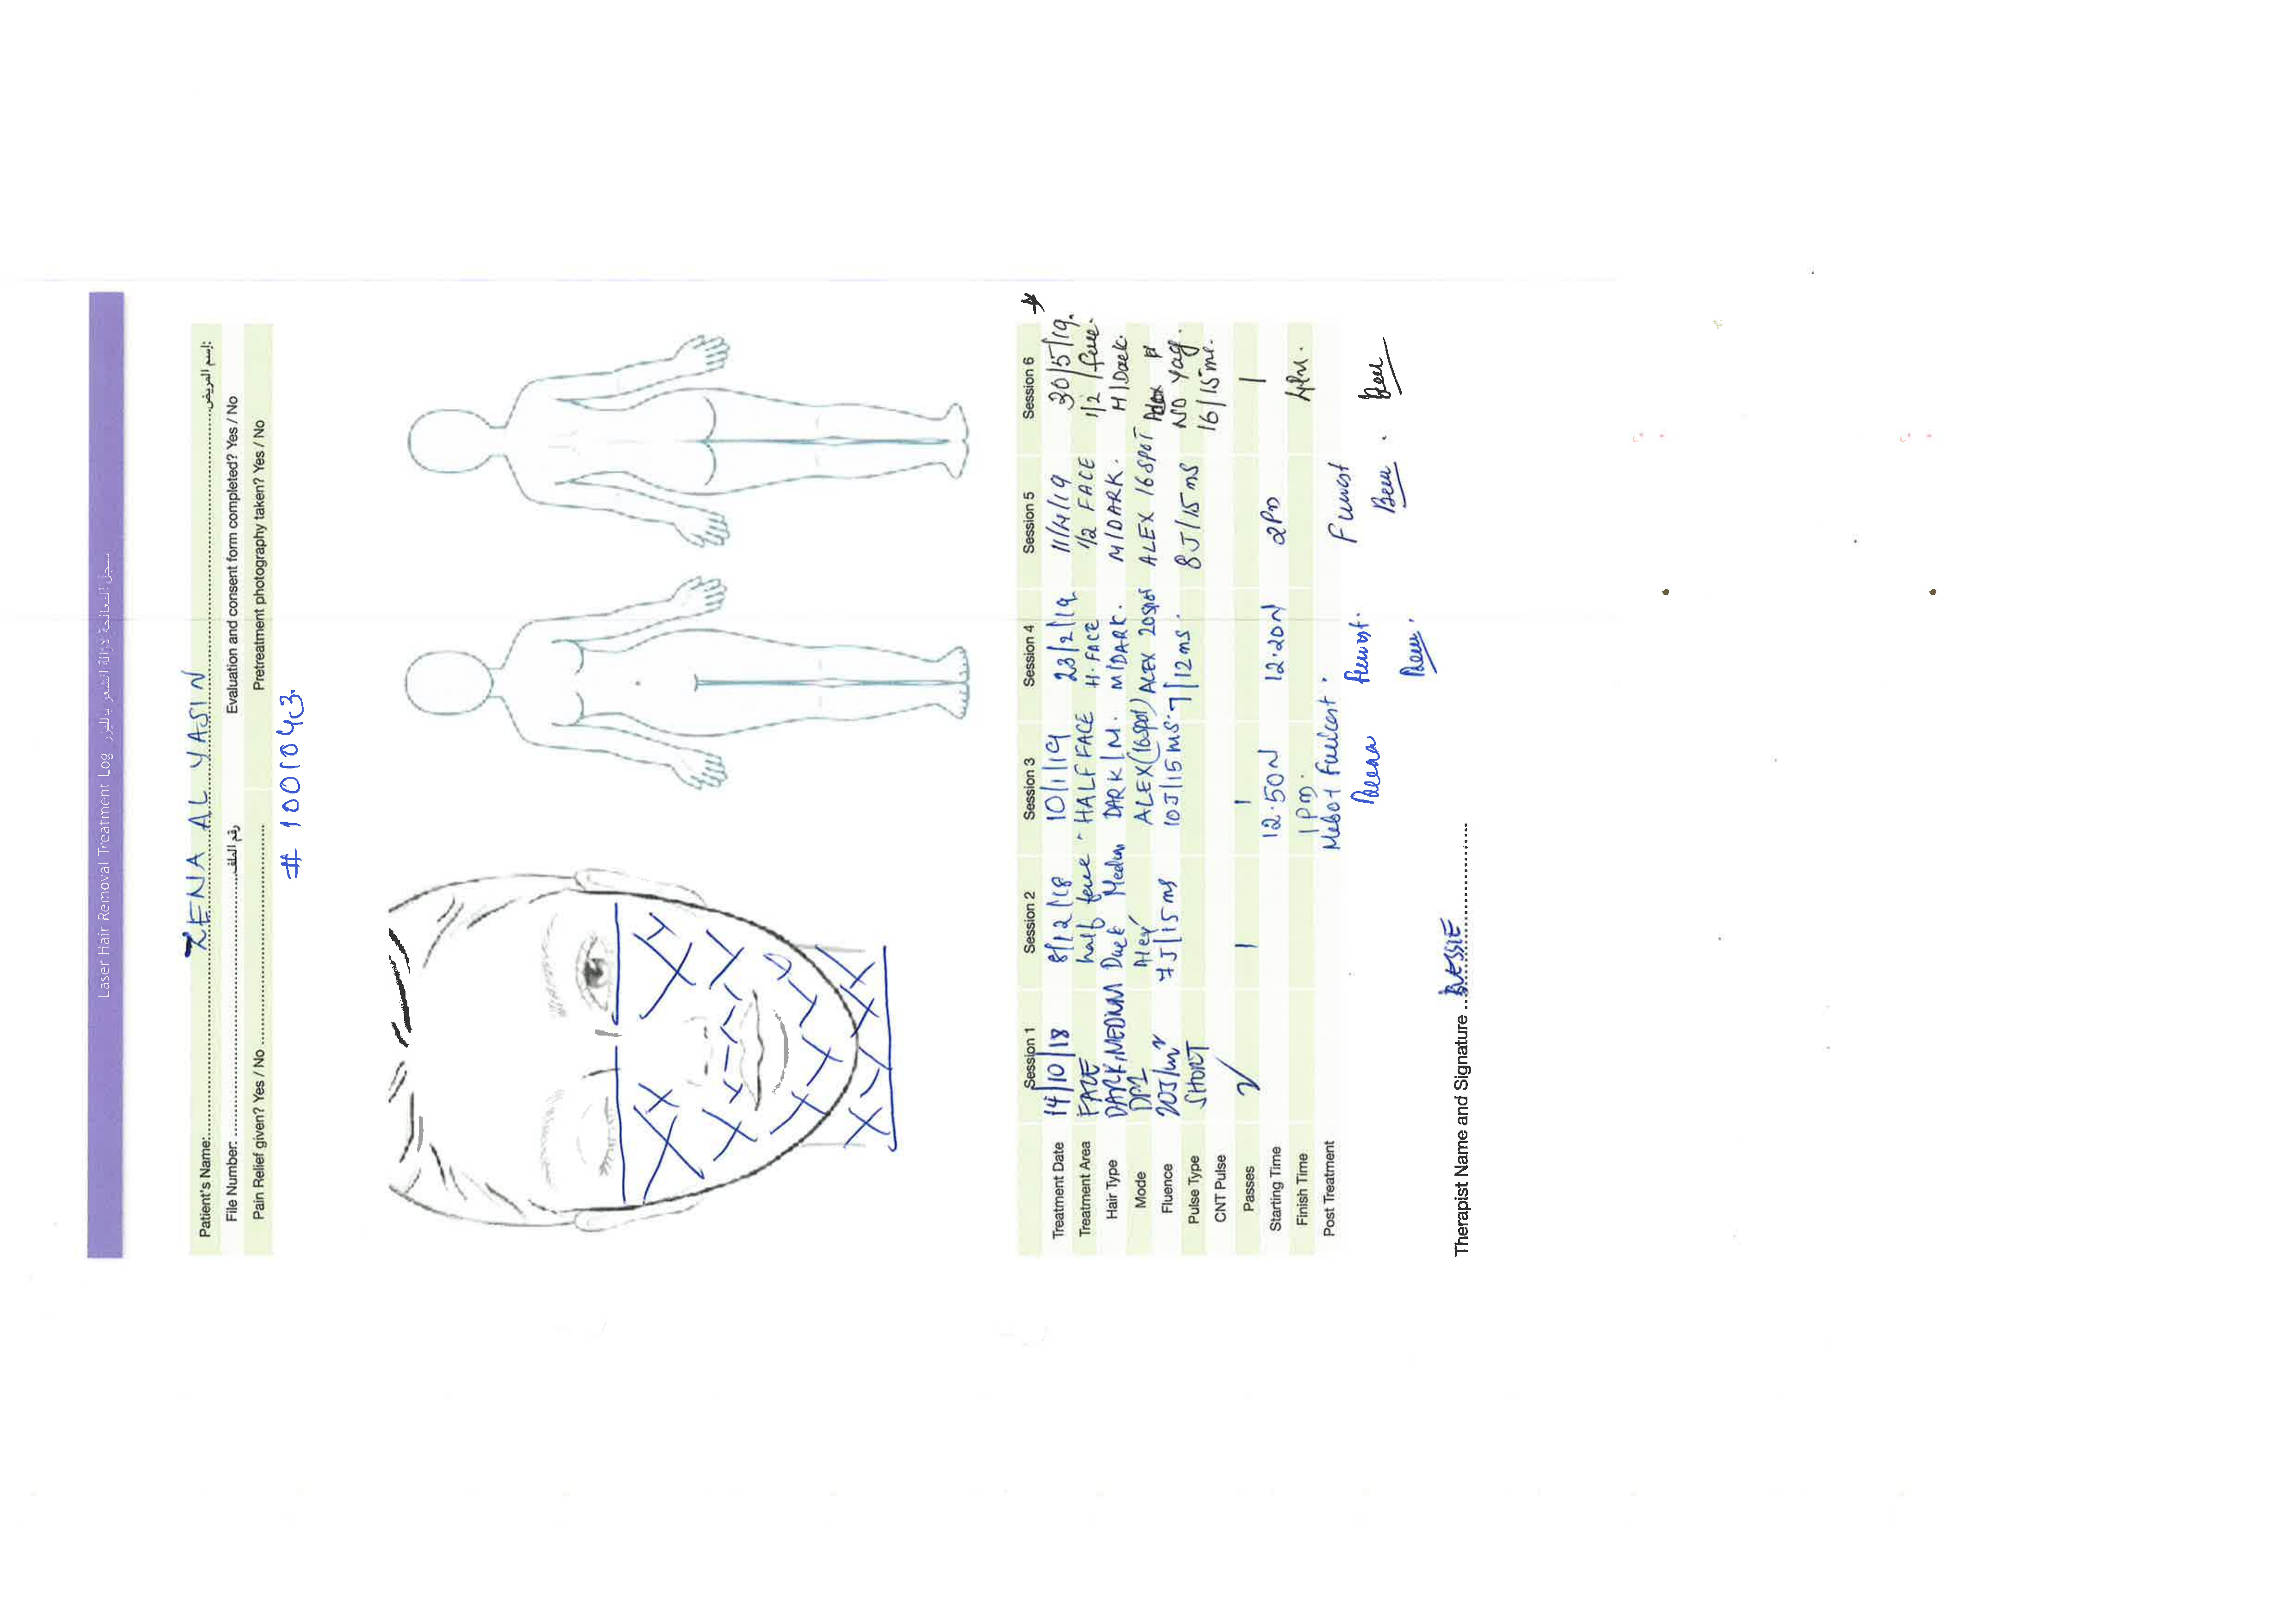 Laser Hair Removal Treatment Log سجل المعالجة لازالة الشعر بالليزر
Patient's Name: ZENA AL YASIN إسم المريض:
File Number: رقم الملف Evaluation and consent form completed? Yes / No
Pain Relief given? Yes / No Pretreatment photography taken? Yes / No
# 1001043.
Session 1 Session 2 Session 3 Session 4 Session 5 Session 6
Treatment Date 14/10/18 8/12/18 10/1/19 23/2/19 11/4/19 30/5/19.
Treatment Area FACE half face HALF FACE H.FACE 1/2 FACE 1/2 face.
Hair Type DARK/MEDIUM Dark Medium DARK/M. M/DARK. M/DARK. M/Dark.
Mode Alex ALEX(16spot) ALEX 20spot ALEX 16SPOT Alex
Fluence 20J/ 7J/15ms 10J/15ms. 7/12ms. 8J/15ms ND Yag.
Pulse Type SHORT 16/15ms.
CNT Pulse
Passes 1 1 1
Starting Time 12.50N 12.20N 2Pm
Finish Time 1Pm.
Post Treatment
Therapist Name and Signature BESSIE